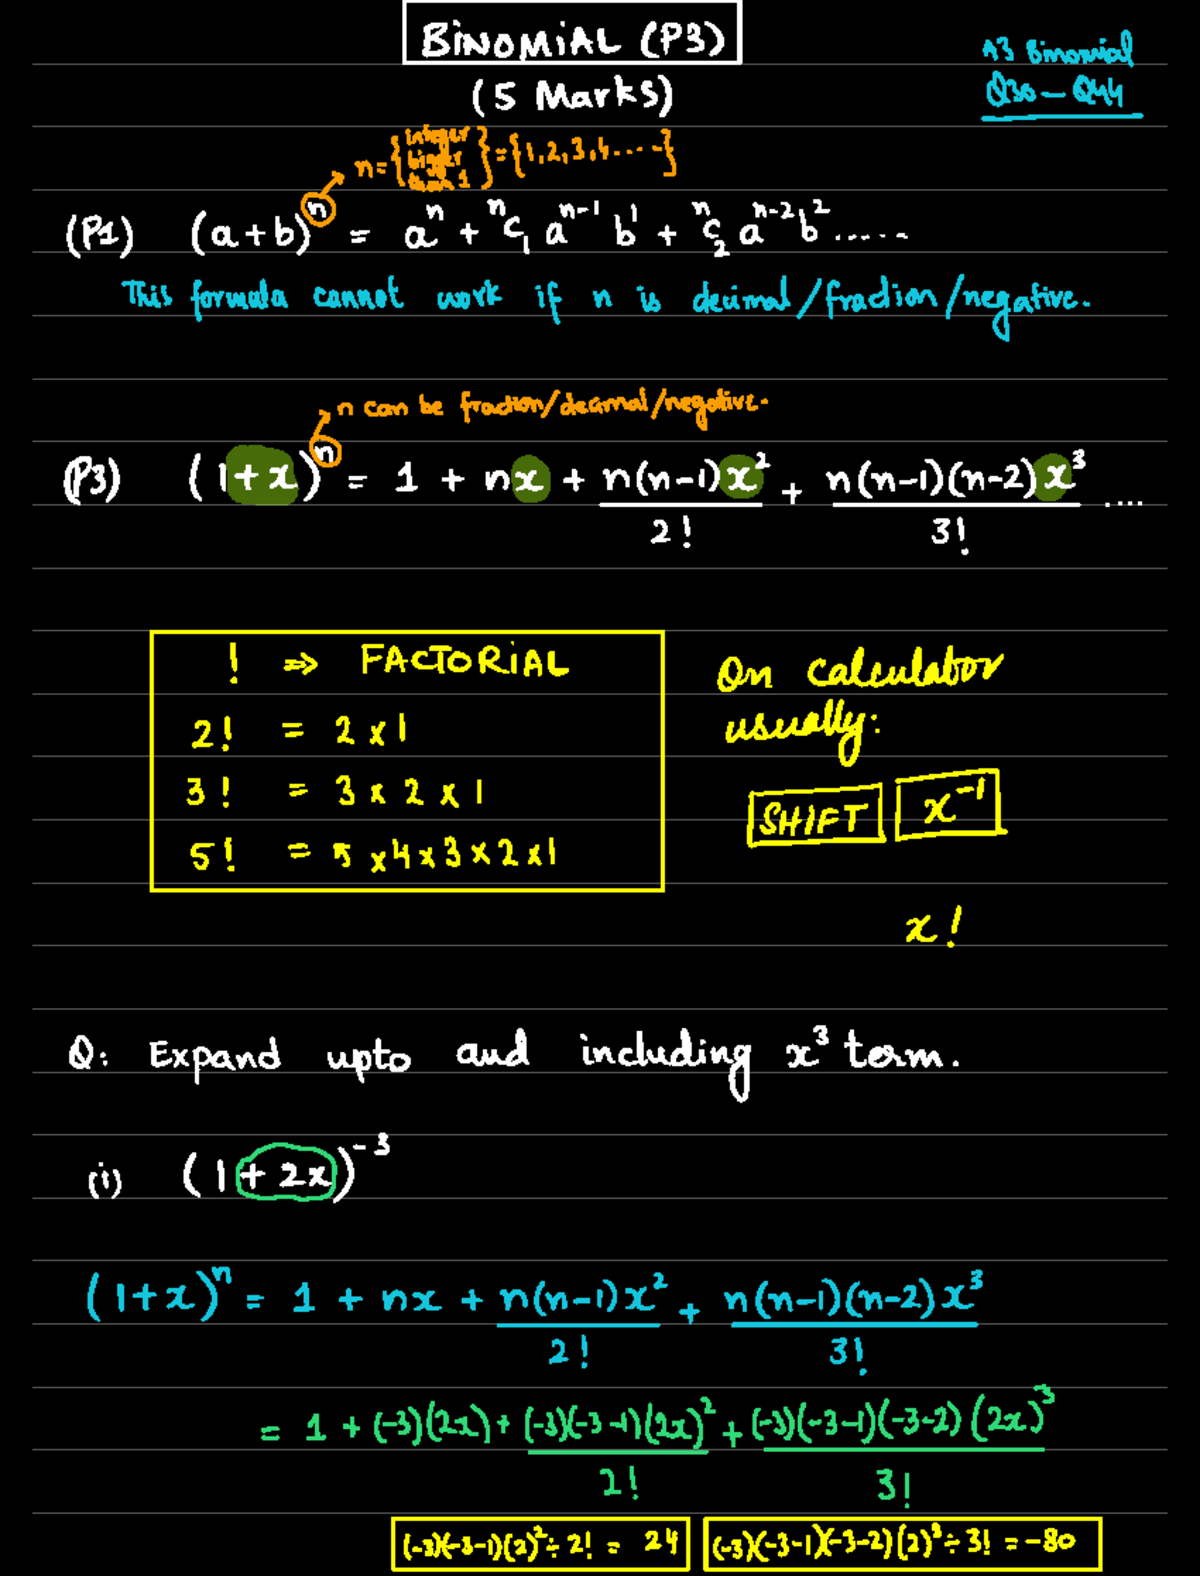 BINOMIAL (P3)
(5 Marks)
A3 Binomial
Q30 – Q44
n = { integer bigger than 1 } = {1, 2, 3, 4 ....}
(P1) (a+b)ⁿ = aⁿ + ⁿC₁ aⁿ⁻¹ b¹ + ⁿC₂ aⁿ⁻² b² .....
This formula cannot work if n is decimal/fraction/negative.
n can be fraction/decimal/negative.
(P3) (1+x)ⁿ = 1 + nx + n(n-1)x²/2! + n(n-1)(n-2)x³/3! ....
! ⇒ FACTORIAL
2! = 2 x 1
3! = 3 x 2 x 1
5! = 5 x 4 x 3 x 2 x 1
On calculator
usually:
SHIFT x⁻¹
x!
Q: Expand upto and including x³ term.
(i) (1 + 2x)⁻³
(1+x)ⁿ = 1 + nx + n(n-1)x²/2! + n(n-1)(n-2)x³/3!
= 1 + (-3)(2x) + (-3)(-3-1)(2x)²/2! + (-3)(-3-1)(-3-2)(2x)³/3!
(-3)(-3-1)(2)² ÷ 2! = 24
(-3)(-3-1)(-3-2)(2)³ ÷ 3! = -80